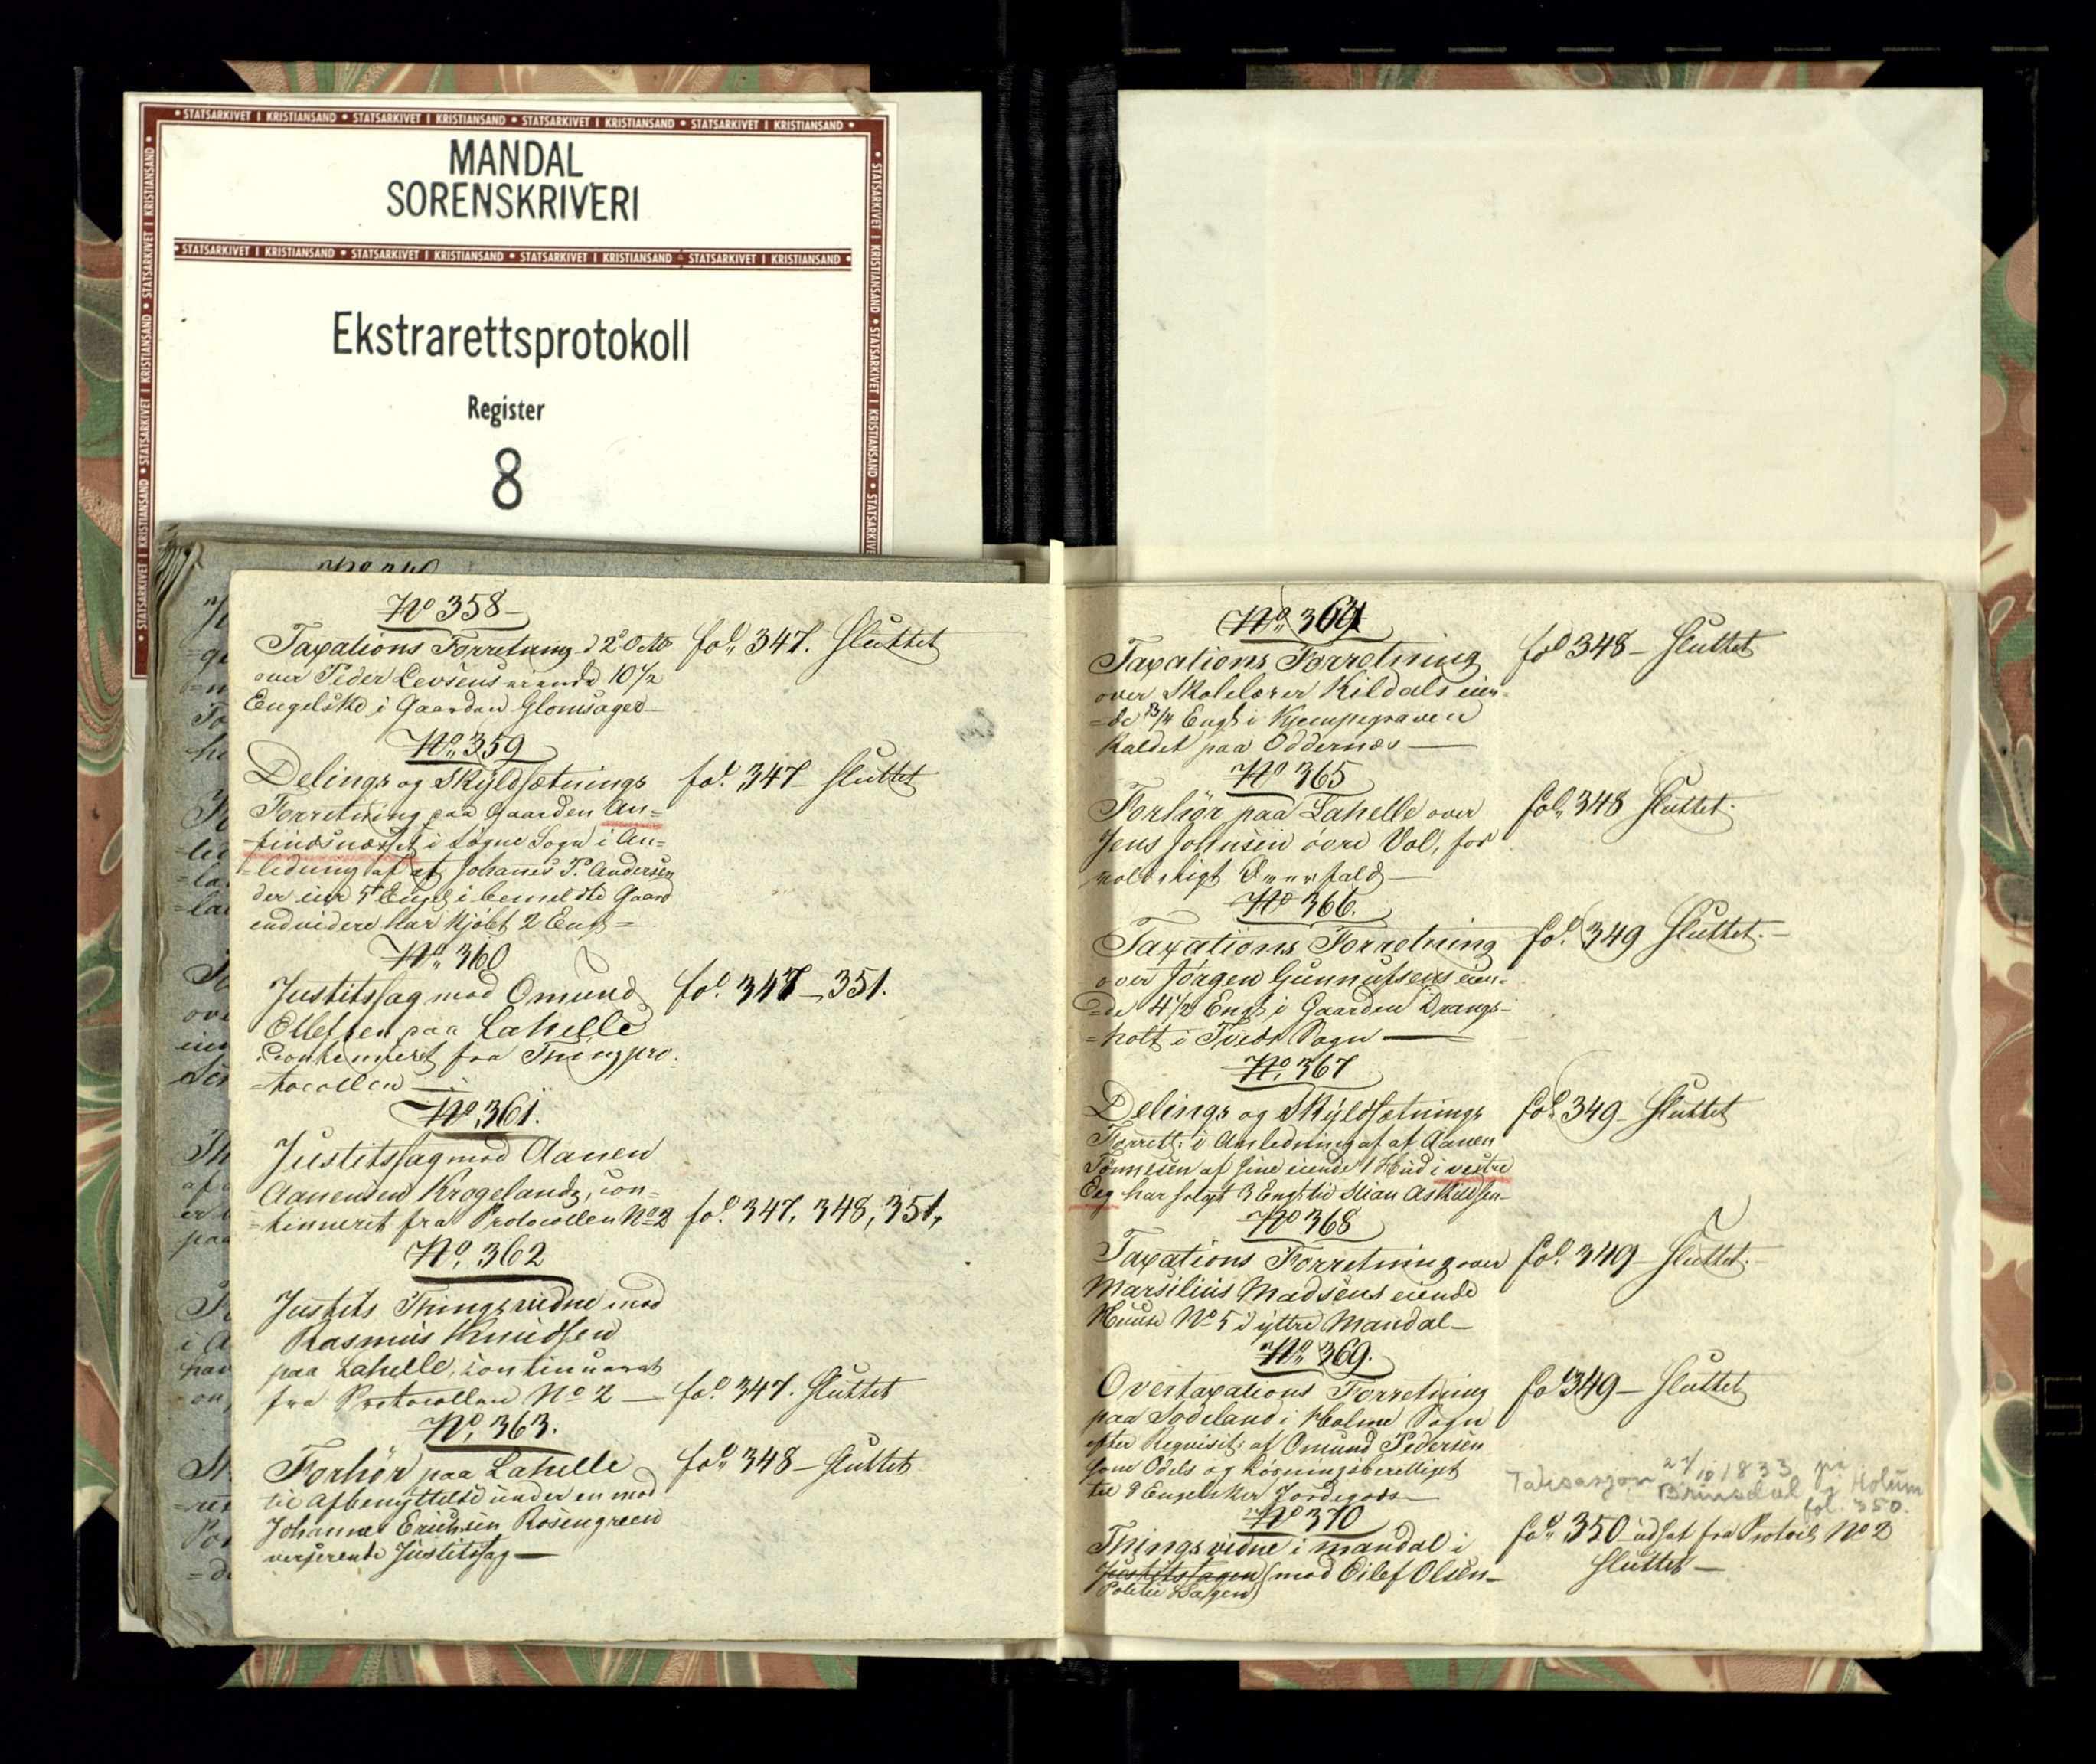 MANDAL
SORENSKRIVERI
Ekstrarettsprotokoll
Register
8
No 358
Taxations Forretning
over Peder Levsens eiende 10 1/2
Engelske i Gaarden Glomsaget
fol. 347. Sluttet
No. 359
Delings og Skÿldsætnings
Forretning paa Gaarden An-
-findsnæsset i Søgne Sogn i An-
-ledning af at Johanes P. Andersen
der eier 5 Engel i bemeldte Gaard
endvidere har kjöbt 2 Eng =
fol. 347 Sluttet
No. 360
Justitssag mod Omund
Ollefsen paa Lahelle
Continueret fra Thingpro-
-tocollen
fol. 347 - 351.
No. 361.
Justitssag mod Aanen
Aanensen Krogeland, con-
-tinueret fra Protocollen No 2
fol. 347, 348, 351,
No. 362
Justits Thingsvidne mod
Rasmus Knudsen
paa Lahelle, continueret
fra Protocollen No 2 —
fol. 347. Sluttet
No. 363.
Forhör paa Lahelle
til Afbenyttelse under en mod
Johannes Erichsen Rosengreen
verserende Justitssag —
fol. 348 - Sluttet
No. 364
Taxations Forretning
over Skolelærer Kildals eien-
-de 3/4 Eng. i Kjempegraven
kaldet paa Oddernæs —
fol 348 - Sluttet
No 365
Forhör paa Lahelle over
Jens Johnsen övre Vol, for
voldeligt Overfald —
fol. 348 Sluttet.
No 366.
Taxations Forretning
over Jörgen Gunnufsens eien-
-de 4 1/2 Eng. i Gaarden Drangs-
-holt i Tvedt Sogn —
fol. 349 Sluttet. -
No. 367
Delings og Skÿldsætnings
Forrett: i Anledning af at Aanen
Tönnesen af sine eiende 1 Hud i vestre
Øeg har solgt 3 Eng. til Stian Askildsen
fol. 349 - Sluttet
No 368
Taxations Forretning over
Marsilius Madsens eiende
Huuse No 5 i ÿttre Mandal -
fol. 349 - Sluttet. -
No. 369.
Overtaxations Forretning
paa Sodeland i Holme Sogn
efter Requisit: af Omund Pedersen
som Odels og Løsningsberettiget
til 9 Engelsker Jordegods -
fol 349 - Sluttet
Taksasjon 27/10 1833 på
Brinsdal i Holum
fol. 350.
No 370
Thingsvidne i Mandal i
Justitssagen (mod Eilef Olsen -
Politie Sagen)
fol. 350 udsat fra Protoc. No 2
Sluttet -